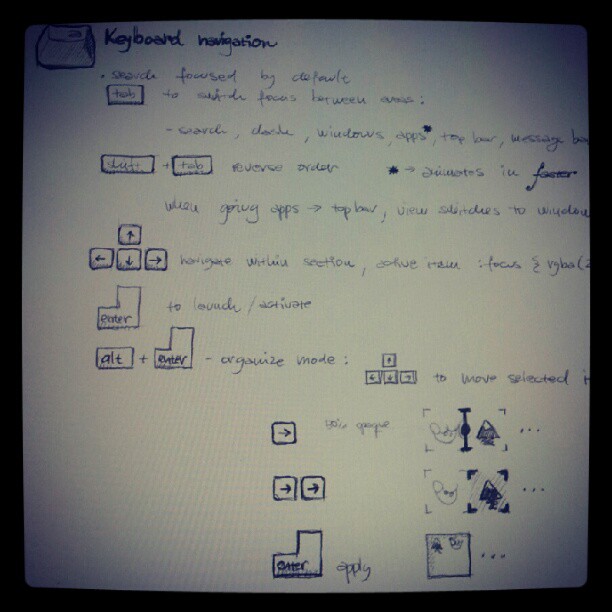 Keyboard navigation
• search focused by default
tab to switch focus between areas:
- search, dash, windows, apps*, top bar, message ba
shift + tab reverse order * → animates in faster
when going apps → top bar, view switches to window
↑
← ↓ → navigate within section, active item :focus { rgba(2
enter to launch / activate
alt + enter - organize mode: ↑
← ↓ → to move selected i
→ ...
→ → ...
enter apply ...